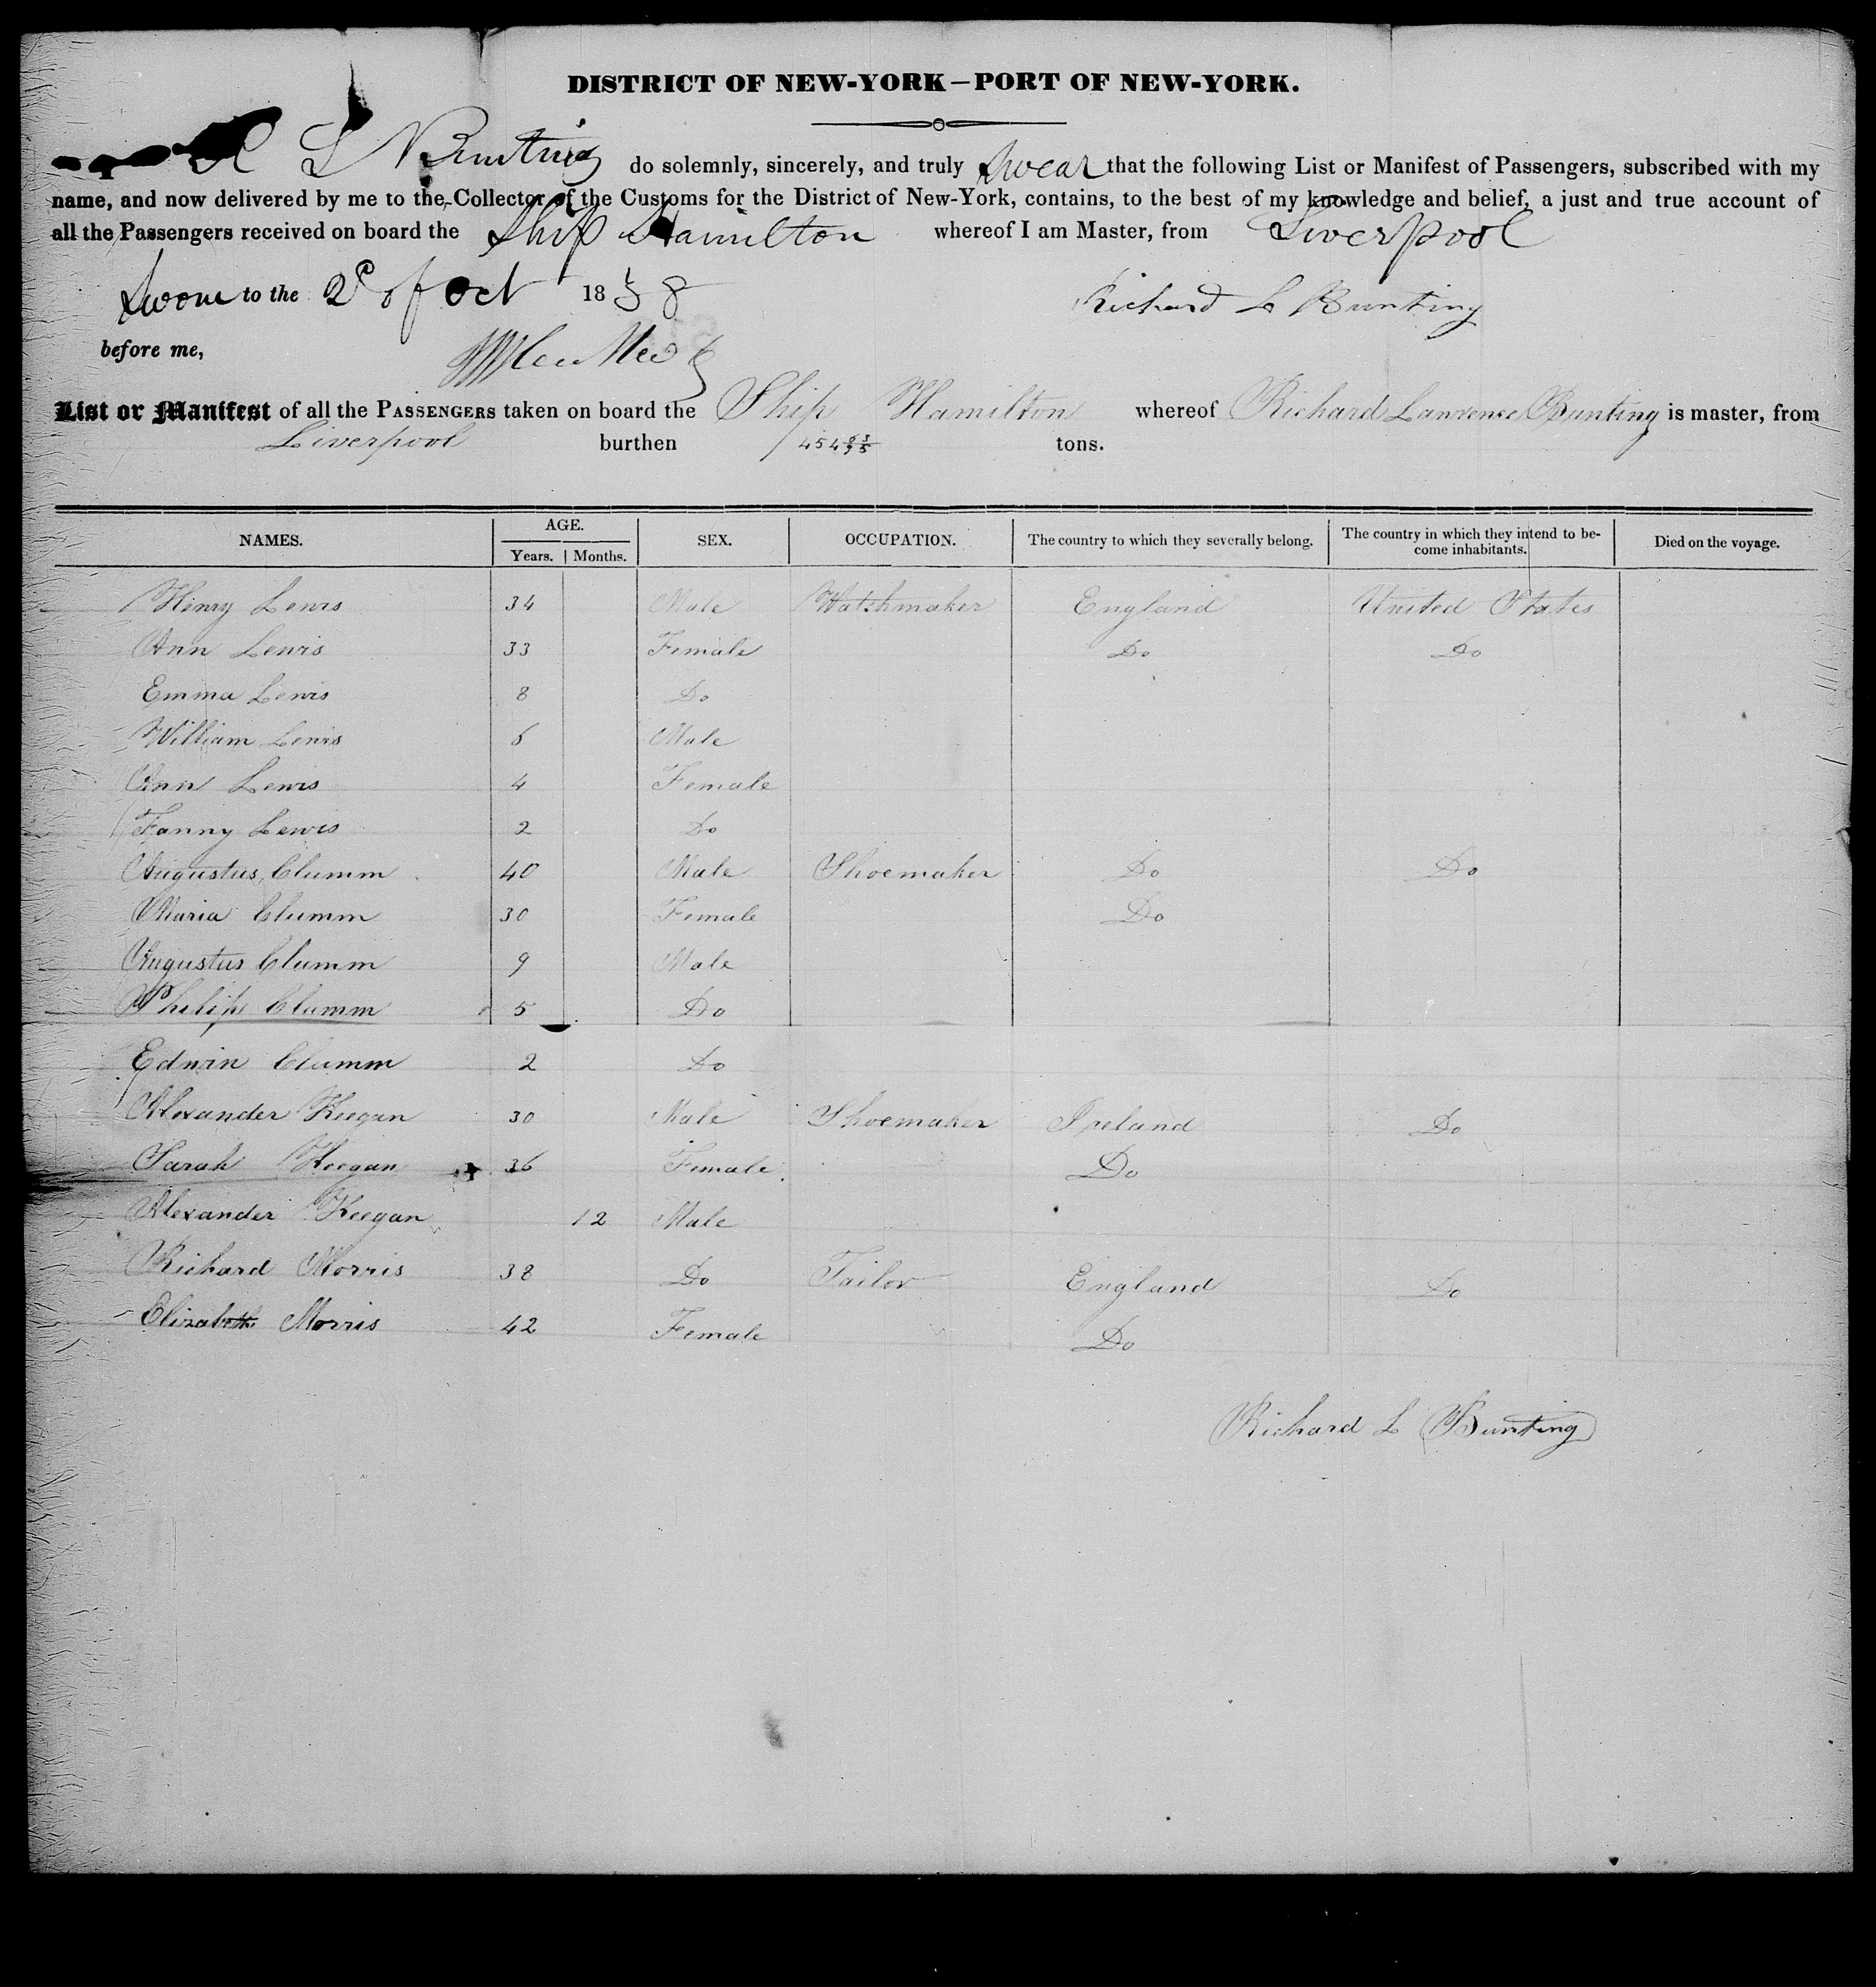 DISTRICT OF NEW-YORK—PORT OF NEW-YORK.
L Bunting do solemnly, sincerely, and truly swear that the following List or Manifest of Passengers, subscribed with my
name, and now delivered by me to the Collector of the Customs for the District of New-York, contains, to the best of my knowledge and belief, a just and true account of
all the Passengers received on board the Ship Hamilton whereof I am Master, from Liverpool
Sworn to the 2d of Oct 1838 Richard L Bunting
before me,
List or Manifest of all the PASSENGERS taken on board the Ship Hamilton whereof Richard Lawrence Bunting is master, from
Liverpool burthen 454 tons.
NAMES. AGE. SEX. OCCUPATION. The country to which they severally belong. The country in which they intend to be-
come inhabitants. Died on the voyage.
Years. Months.
Henry Lewis 34 Male Watchmaker England United States
Ann Lewis 33 Female Do Do
Emma Lewis 8 Do
William Lewis 6 Male
Ann Lewis 4 Female
Fanny Lewis 2 Do
Augustus Clumm 40 Male Shoemaker Do Do
Maria Clumm 30 Female Do
Augustus Clumm 9 Male
Philip Clumm 5 Do
Edwin Clumm 2 Do
Alexander Keegan 30 Male Shoemaker Ireland Do
Sarah Keegan 36 Female Do
Alexander Keegan 12 Male
Richard Morris 38 Do Tailor England Do
Elizabeth Morris 42 Female Do
Richard L Bunting